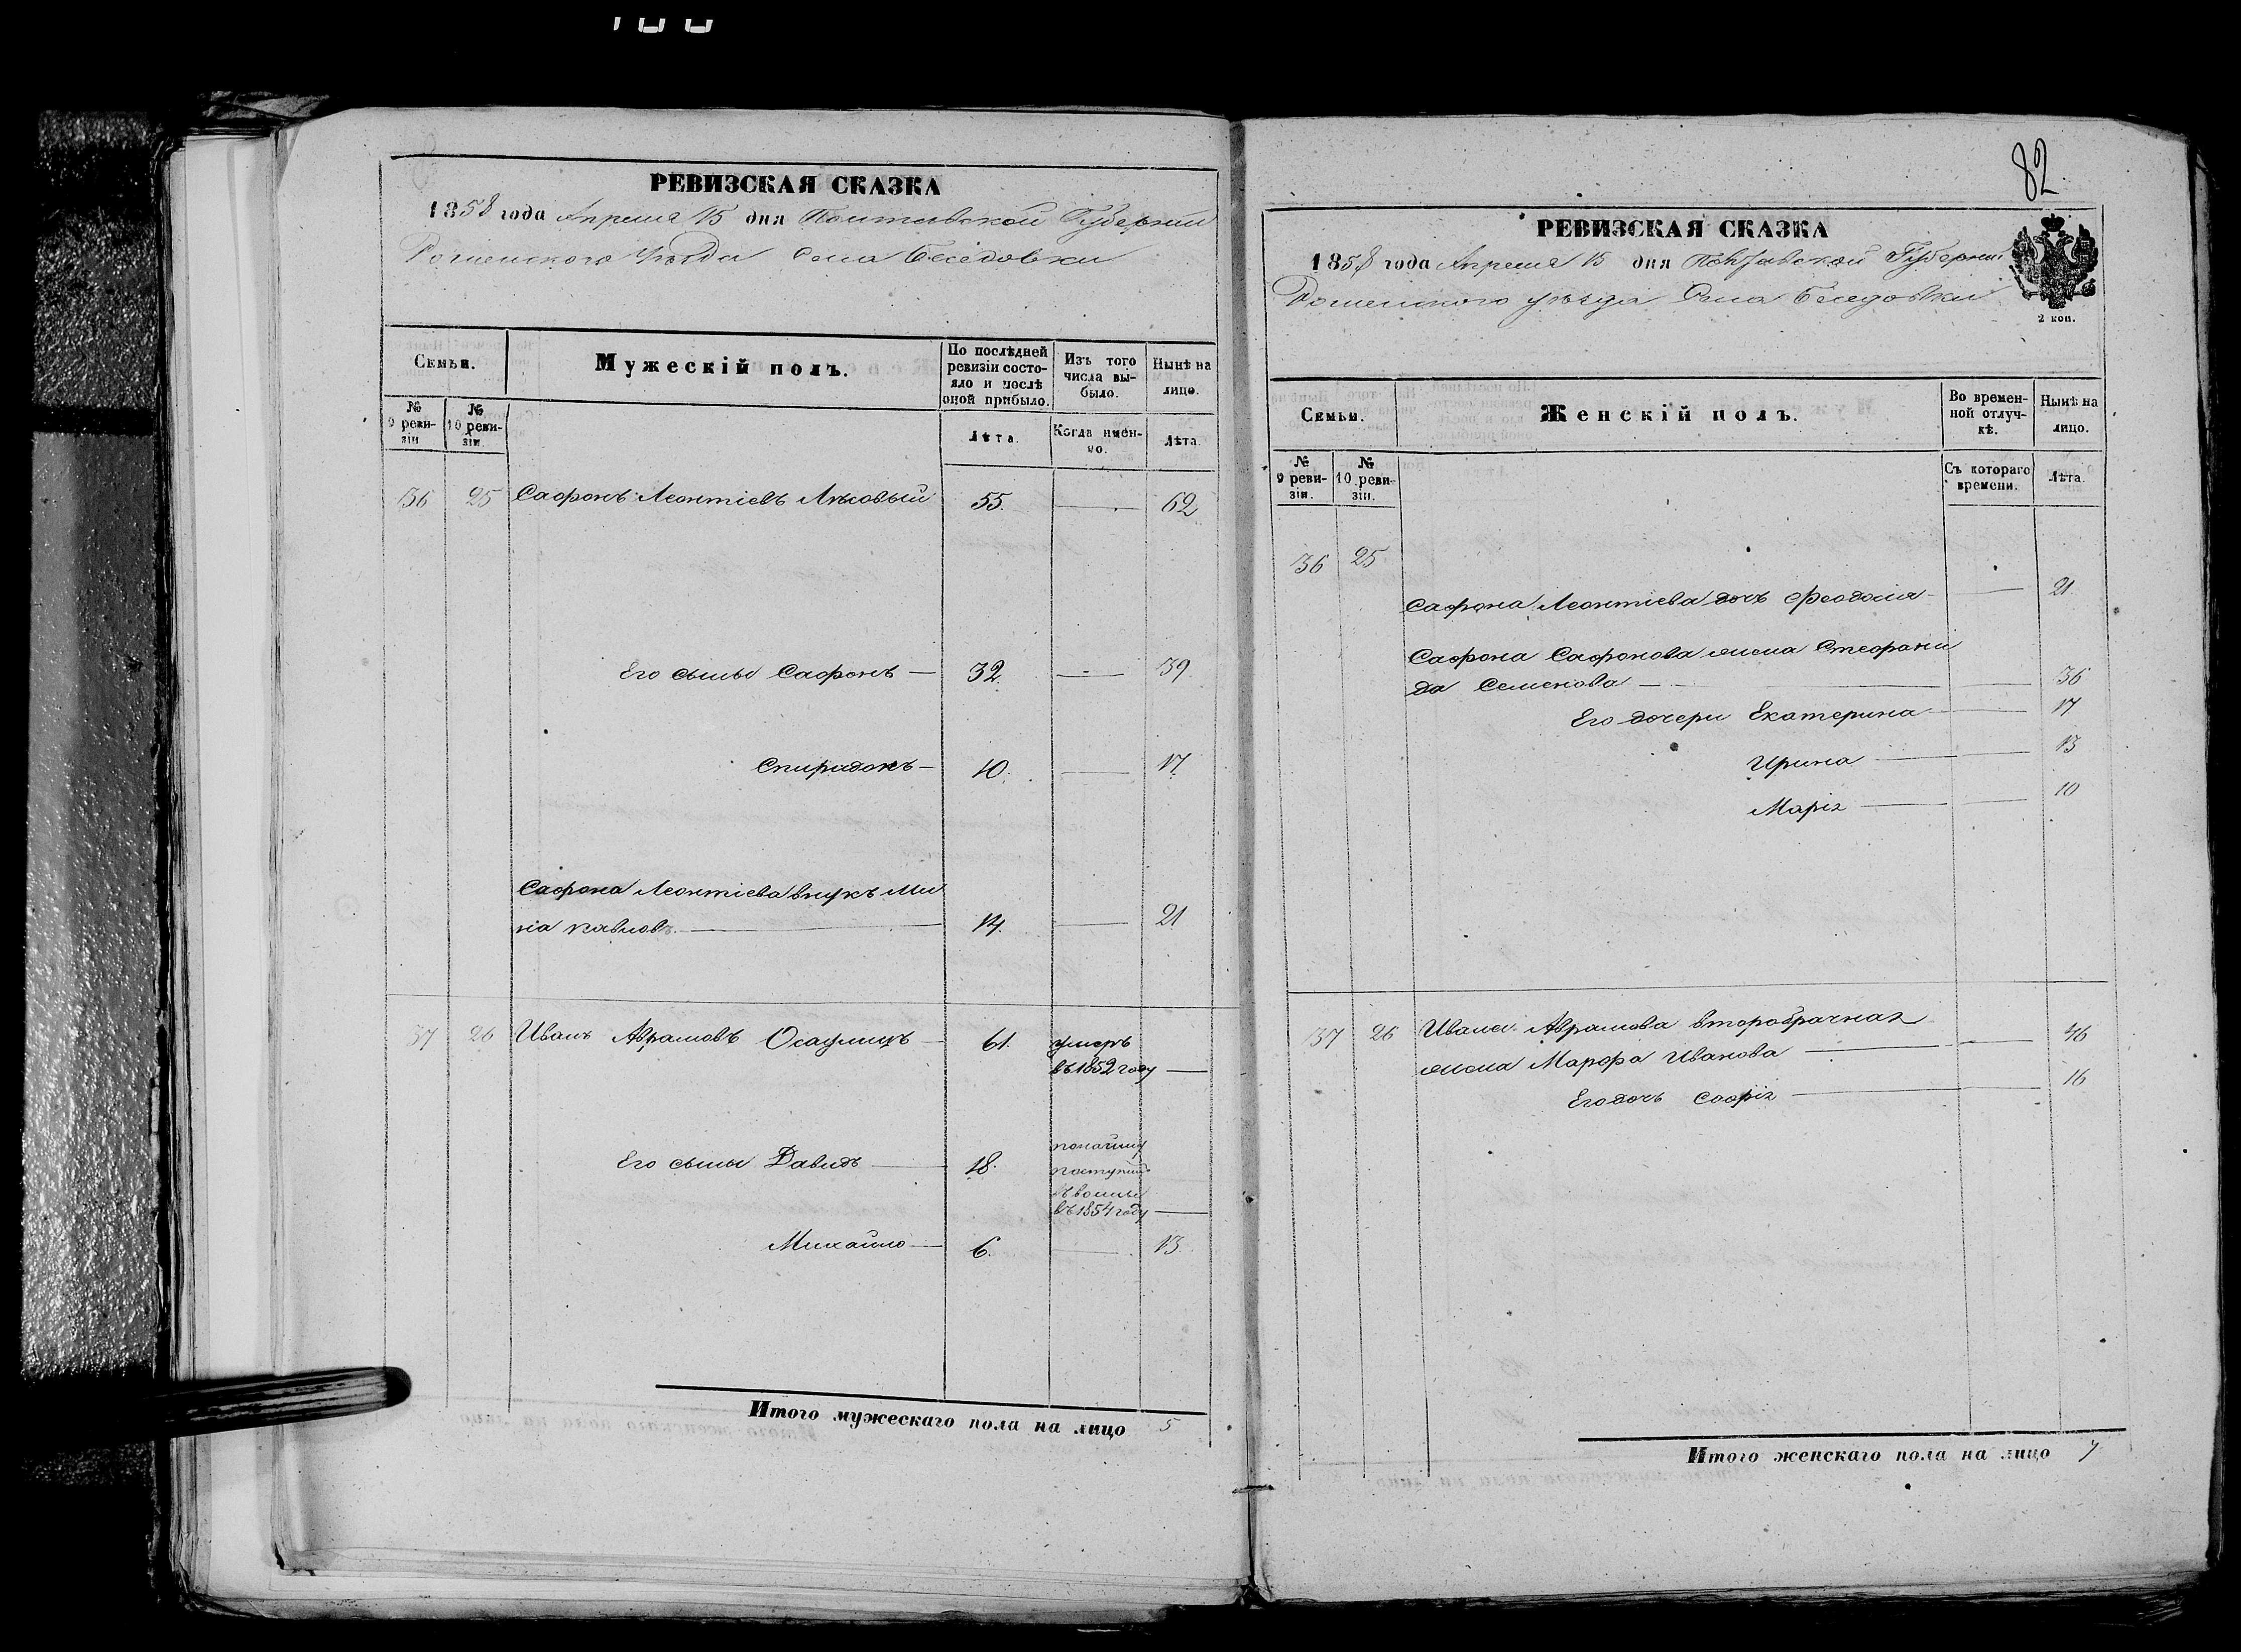 82
РЕВИЗСКАЯ СКАЗКА
1858 года Апреля 15 дня Полтавской Губернии
Роменского Уѣзда Села Беседовки
Семьи.
Мужескій полъ.
По послѣдней ревизіи состояло и послѣ оной прибыло.
Изъ того числа выбыло.
Нынѣ на лицо.
№ 9 ревизіи
№ 10 ревизіи.
Лѣта.
Когда именно.
Лѣта
36 25 Сафронъ Леонтіевъ Лѣсовый 55. — 62
Его сыны Сафронъ — 32. — 39.
Спирадонъ — 10. — 17.
Сафрона Леонтіева внукъ Ми
на Павловъ. — 14. — 21
37 26 Иванъ Аврамовъ Осаулицъ — 61. умеръ
въ 1852 году —
Его сыны Давидъ — 18.
поступил
въ 1854 году —
Михайло — 6. — 13.
Итого мужескаго пола на лицо 5
РЕВИЗСКАЯ СКАЗКА
1858 года Апреля 15 дня Полтавской Губернии
Роменского уѣзда Села Беседовки
2 коп.
Семьи.
Женскій полъ.
Во временной отлучкѣ.
Нынѣ на лицо.
№ 9 ревизіи.
№ 10 ревизіи.
Съ котораго времени.
Лѣта.
36 25
Сафрона Леонтіева дочъ Феодосія — 21.
Сафрона Сафронова жена Стефани
да Семенова — 36
Его дочери Екатерина — 17
Ирина — 13
Марія — 10
37 26 Ивана Аврамова второбрачная
жена Марфа Иванова — 46
Его дочъ Софія — 16
Итого женскаго пола на лицо 7